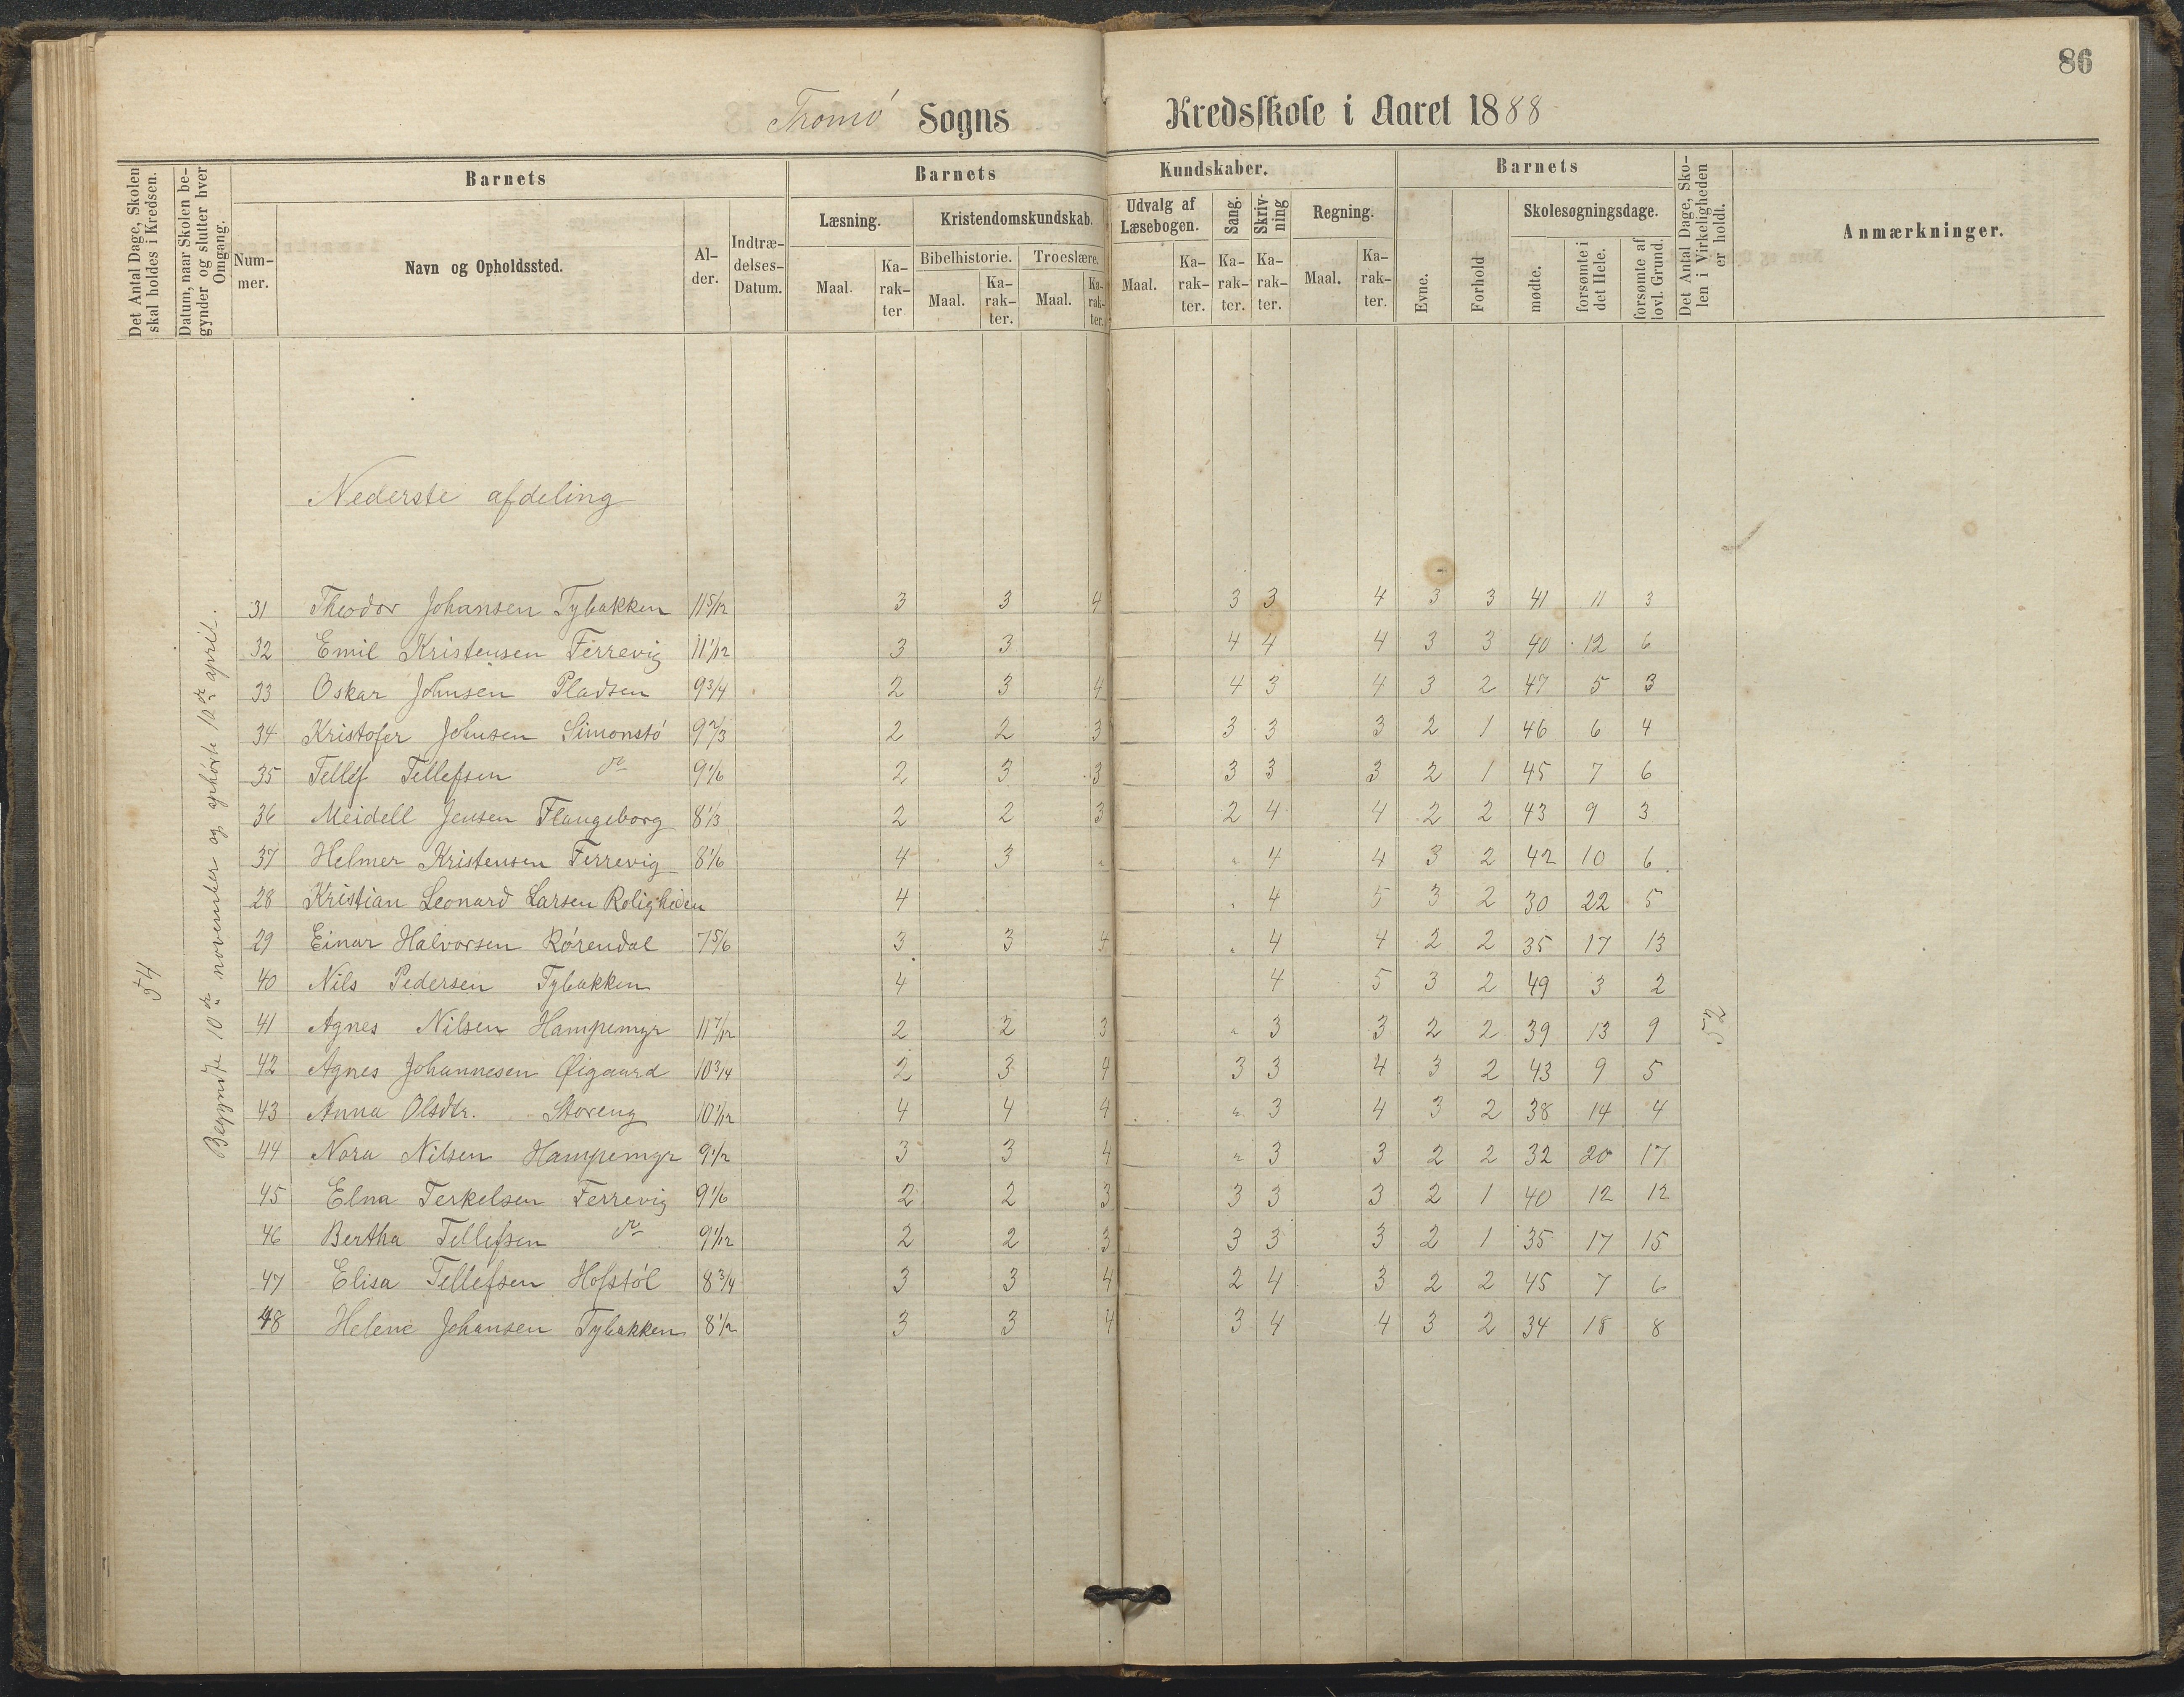 86
Tromø Sogns Kredsskole i Aaret 1888
Det Antal Dage, Skolen skal holdes i Kredsen.
Datum, naar Skolen begynder og slutter hver Omgang.
Barnets
Num-
mer.
Navn og Opholdssted.
Al-
der.
Indtræ-
delses-
Datum.
Barnets Kundskaber.
Læsning.
Maal.
Ka-
rak-
ter
Kristendomskundskab.
Bibelhistorie.
Maal.
Ka-
rak-
ter.
Troeslære.
Maal.
Ka-
rak-
ter.
Udvalg af
Læsebogen.
Maal.
Ka-
rak-
ter.
Sang.
Ka-
rak-
ter.
Skriv-
ning
Ka-
rak-
ter.
Regning.
Maal.
Ka-
rak-
ter.
Barnets
Evne.
Forhold
Skolesøgningsdage.
mødte.
forsømte i
det Hele.
forsømte af
lovl. Grund.
Det Antal Dage, Sko-
len i Virkeligheden
er holdt.
Anmærkninger.
Nederste afdeling
54
Begyndte 10de november og ophørte 10de april.
31 Theodor Johansen Tybakken 11 5/12 3 3 4 3 3 4 3 3 41 11 3
32 Emil Kristensen Færrevig 11 1/12 3 3 4 4 4 3 3 40 12 6
33 Oskar Johnsen Pladsen 9 3/4 2 3 4 4 3 4 3 2 47 5 3
34 Kristofer Johnsen Simonstø 9 2/3 2 2 3 3 3 3 2 1 46 6 4
35 Tellef Tellefsen do 9 1/6 2 3 3 3 3 3 2 1 45 7 6
36 Meidell Jensen Flangeborg 8 1/3 2 2 3 2 4 4 2 2 43 9 3
37 Helmer Kristensen Færrevig 8 1/6 4 3 " " 4 4 3 2 42 10 6
28 Kristian Leonard Larsen Roligheden 4 " 4 5 3 2 30 22 5
29 Einar Halvorsen Rørendal 7 5/6 3 3 4 " 4 4 2 2 35 17 13
40 Nils Pedersen Tybakken 4 4 5 3 2 49 3 2
41 Agnes Nilsen Hampemyr 11 7/12 2 2 3 " 3 3 2 2 39 13 9
52
42 Agnes Johannesen Øigaard 10 3/4 2 3 4 3 3 4 3 2 43 9 5
43 Anna Olsdtr. Storeng 10 1/12 4 4 4 " 3 4 3 2 38 14 4
44 Nora Nilsen Hampemyr 9 1/2 3 3 4 " 3 3 2 2 32 20 17
45 Elna Terkelsen Færrevig 9 1/6 2 2 3 3 3 3 2 1 40 12 12
46 Bertha Tellefsen do 9 1/12 2 2 3 3 3 3 2 1 35 17 15
47 Elisa Tellefsen Hofstøl 8 3/4 3 3 4 2 4 3 2 2 45 7 6
48 Helene Johansen Tybakken 8 1/2 3 3 4 3 4 4 3 2 34 18 8